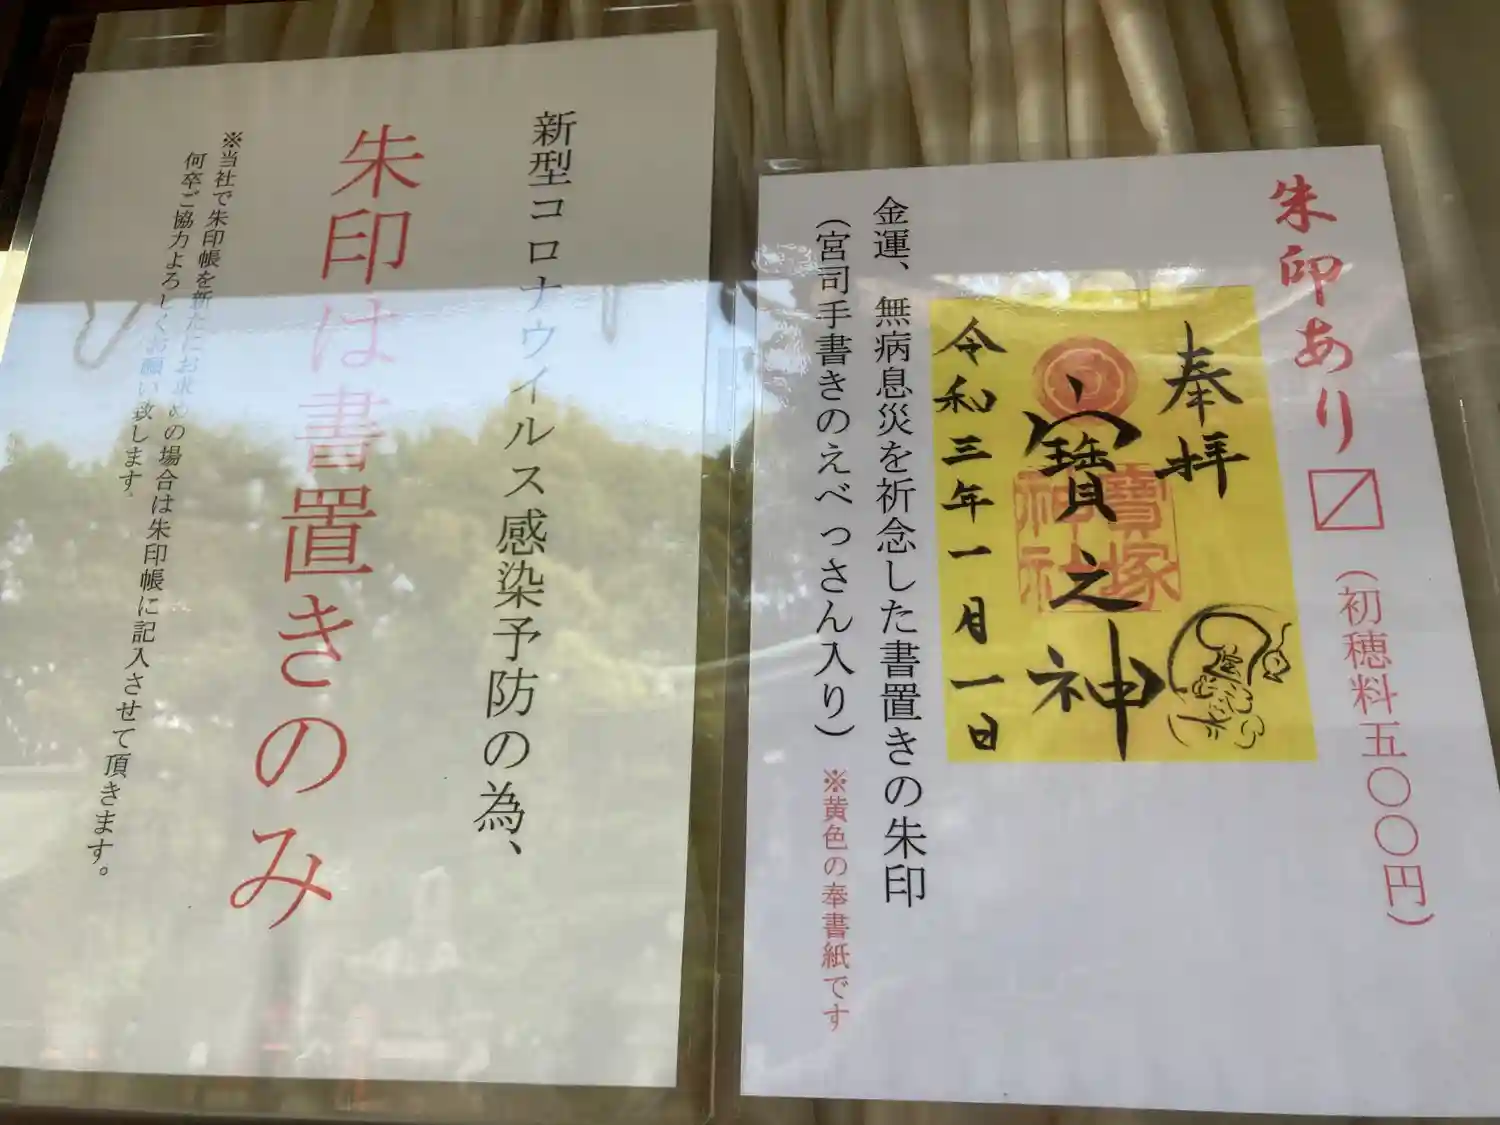 朱印あり〼(初穂料五〇〇円)
奉拝
寶之神
寶塚
神社
令和三年一月一日
金運、無病息災を祈念した書置きの朱印
(宮司手書きのえべっさん入り)※黄色の奉書紙です
新型コロナウイルス感染予防の為、
朱印は書置きのみ
※当社で朱印帳を新たにお求めの場合は朱印帳に記入させて頂きます。
何卒ご協力よろしくお願い致します。